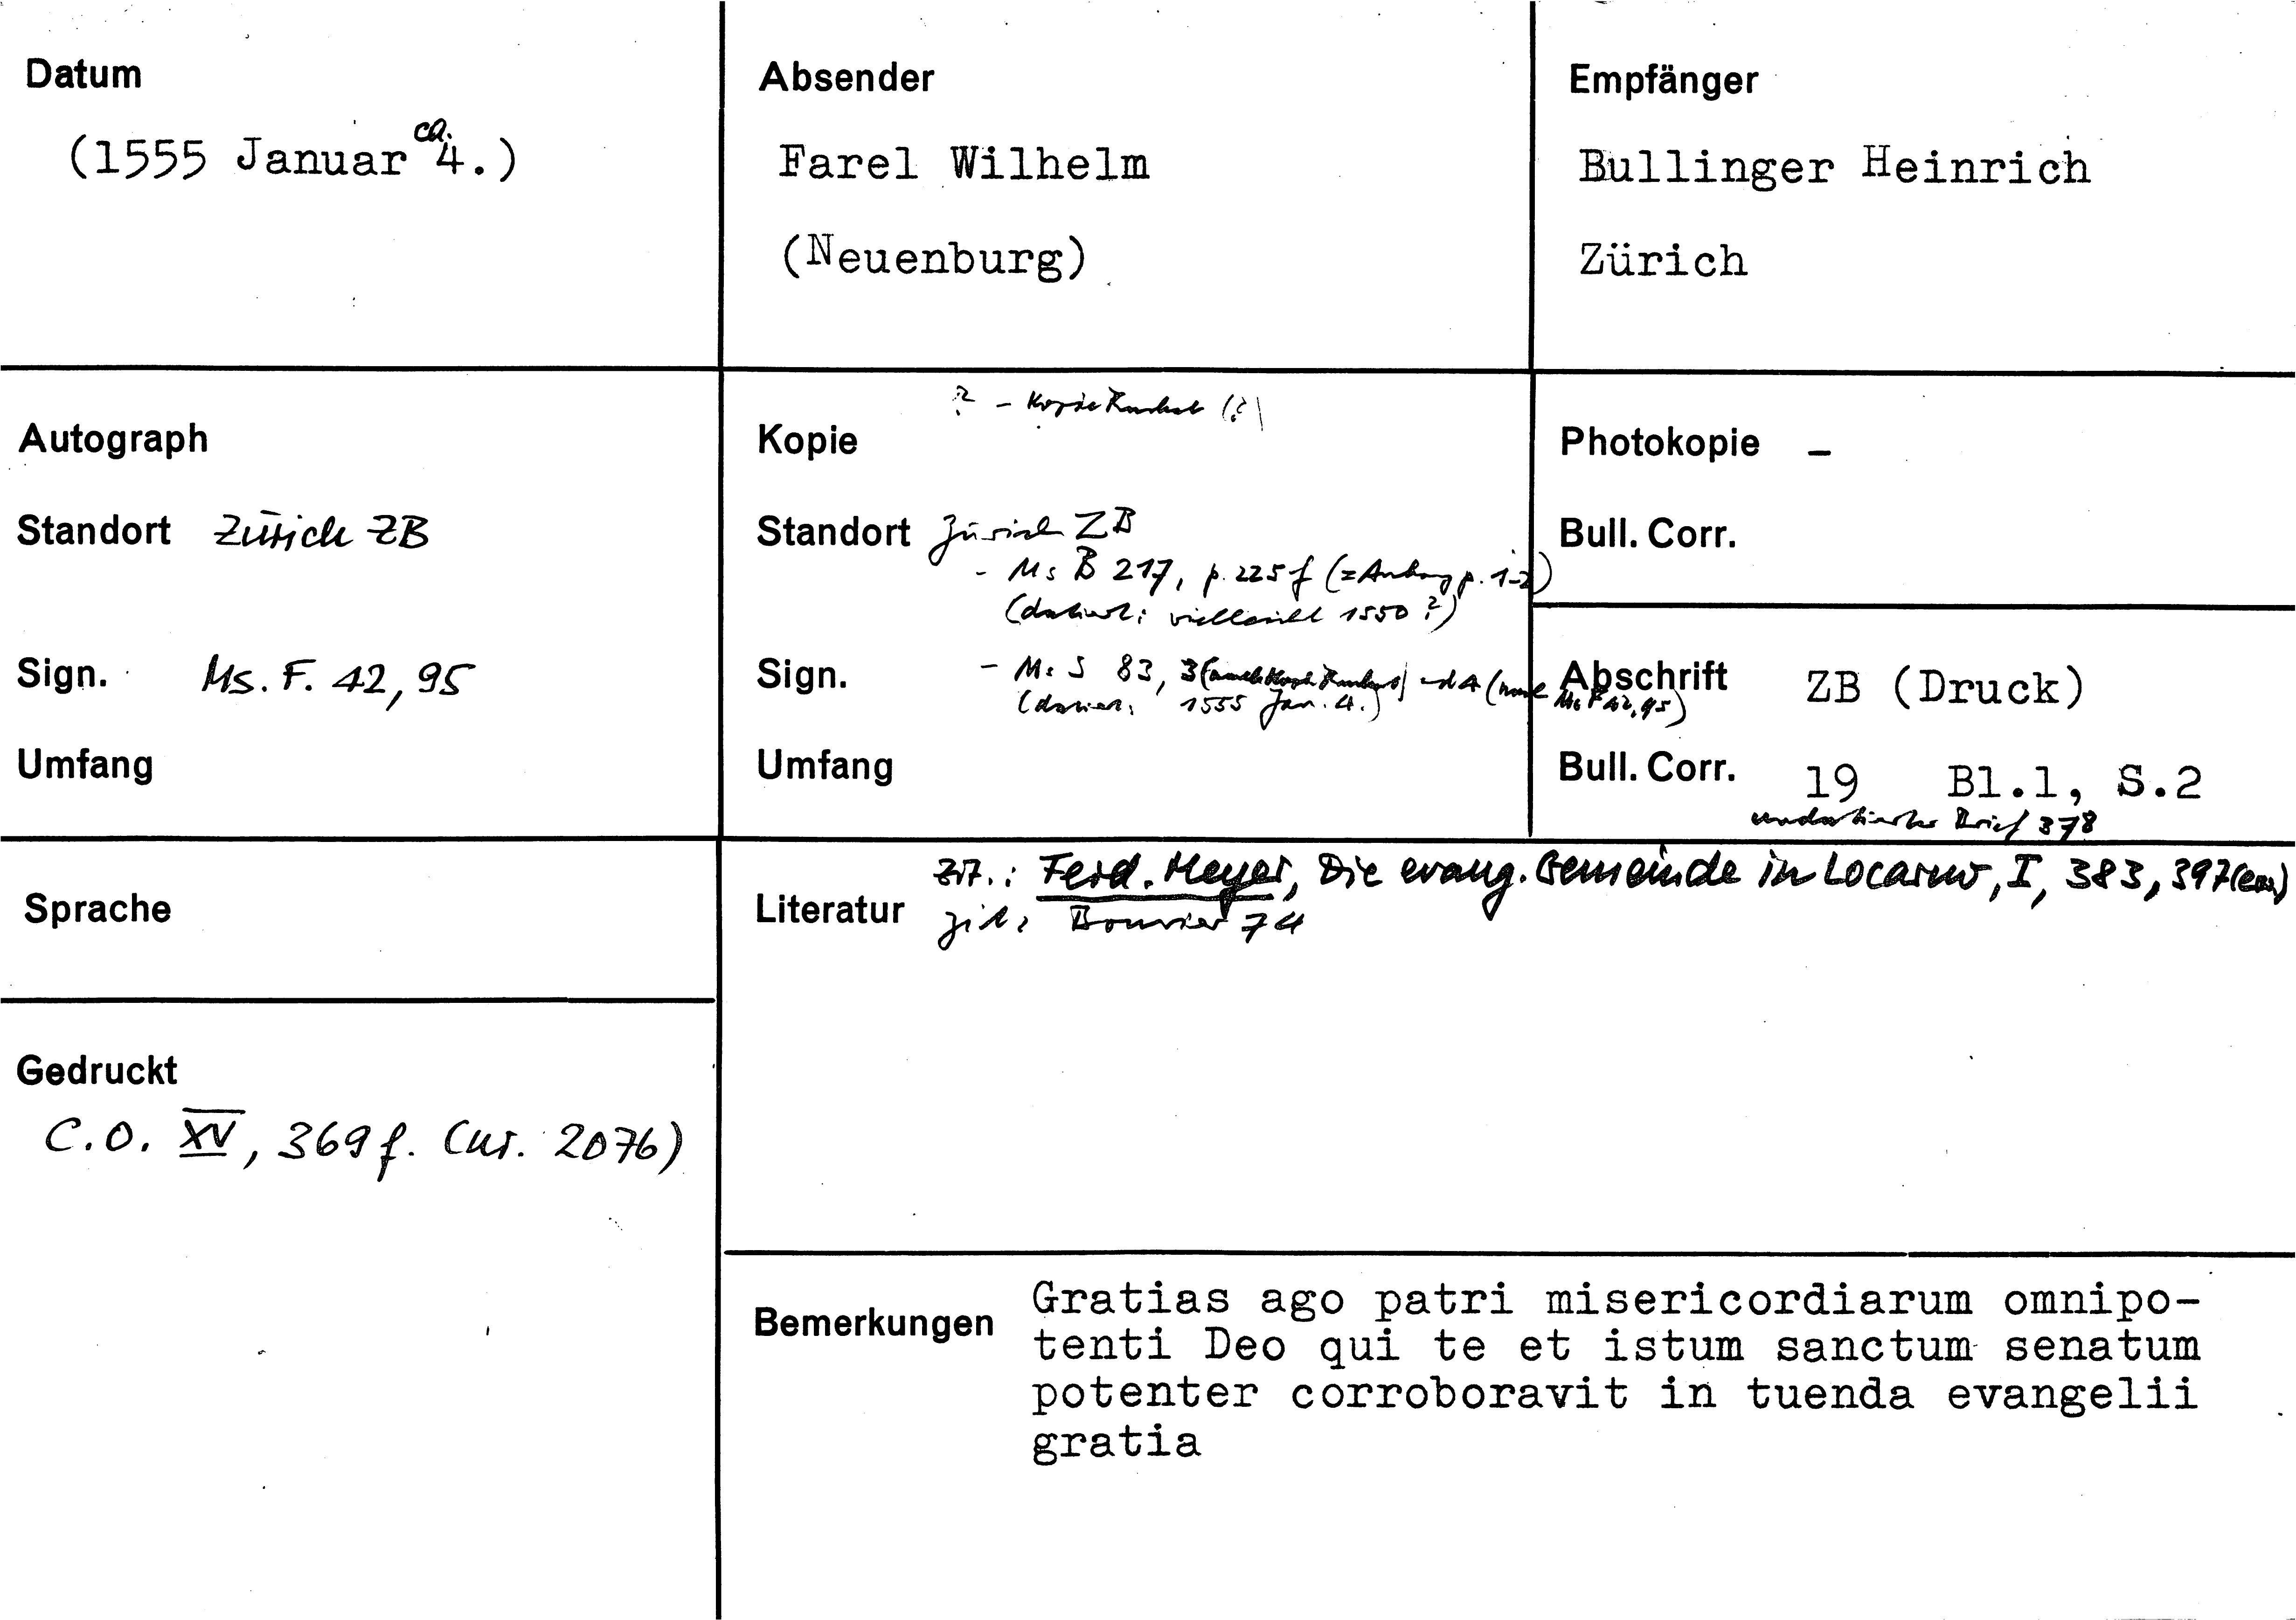 Datum
(1555 Januar ca. 4.)
Absender
Farel Wilhelm
(Neuenburg)
Empfänger
Bullinger Heinrich
Zürich
Autograph
Standort Zürich ZB
Sign. Ms. F. 42, 95
Umfang
? - Kopie (?)
Kopie
Standort Zürich ZB
- Ms B 217, p. 225 f (= Anhang p. 1-2)
(datiert: vielleicht 1550?)
Sign. - Ms S 83, 3 4 Ms F 42, 95)
(datiert: 1555 Jan. 4.)
Umfang
Photokopie -
Bull. Corr.
Abschrift ZB (Druck)
Bull. Corr. 19 Bl.1, S.2
undatierter Brief 378
Sprache
Gedruckt
C.O. XV, 369 f. (nr. 2076)
zit.: Ferd. Meyer, Die evang. Gemeinde in Locarno, I, 383, 397
Literatur zit. Bouvier 74
Bemerkungen
Gratias ago patri misericordiarum omnipo-
tenti Deo qui te et istum sanctum senatum
potenter corroboravit in tuenda evangelii
gratia